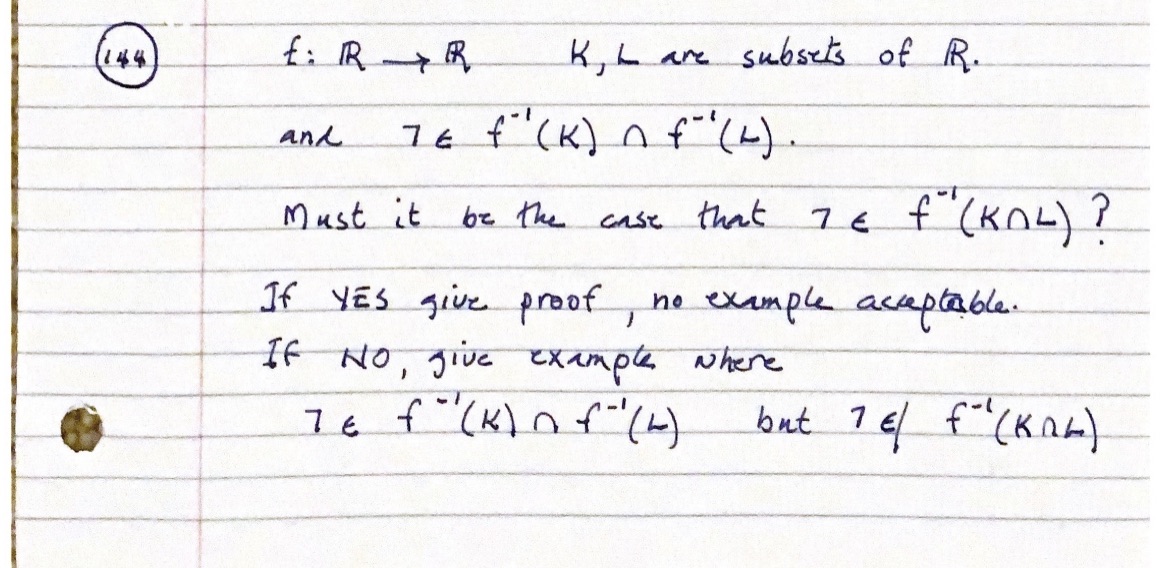 144 f: ℝ → ℝ K, L are subsets of ℝ.
and 7 ∈ f⁻¹(K) ∩ f⁻¹(L).
Must it be the case that 7 ∈ f⁻¹(K∩L)?
If YES give proof, no example acceptable.
If NO, give example where
7 ∈ f⁻¹(K) ∩ f⁻¹(L) but 7 ∉ f⁻¹(K∩L)